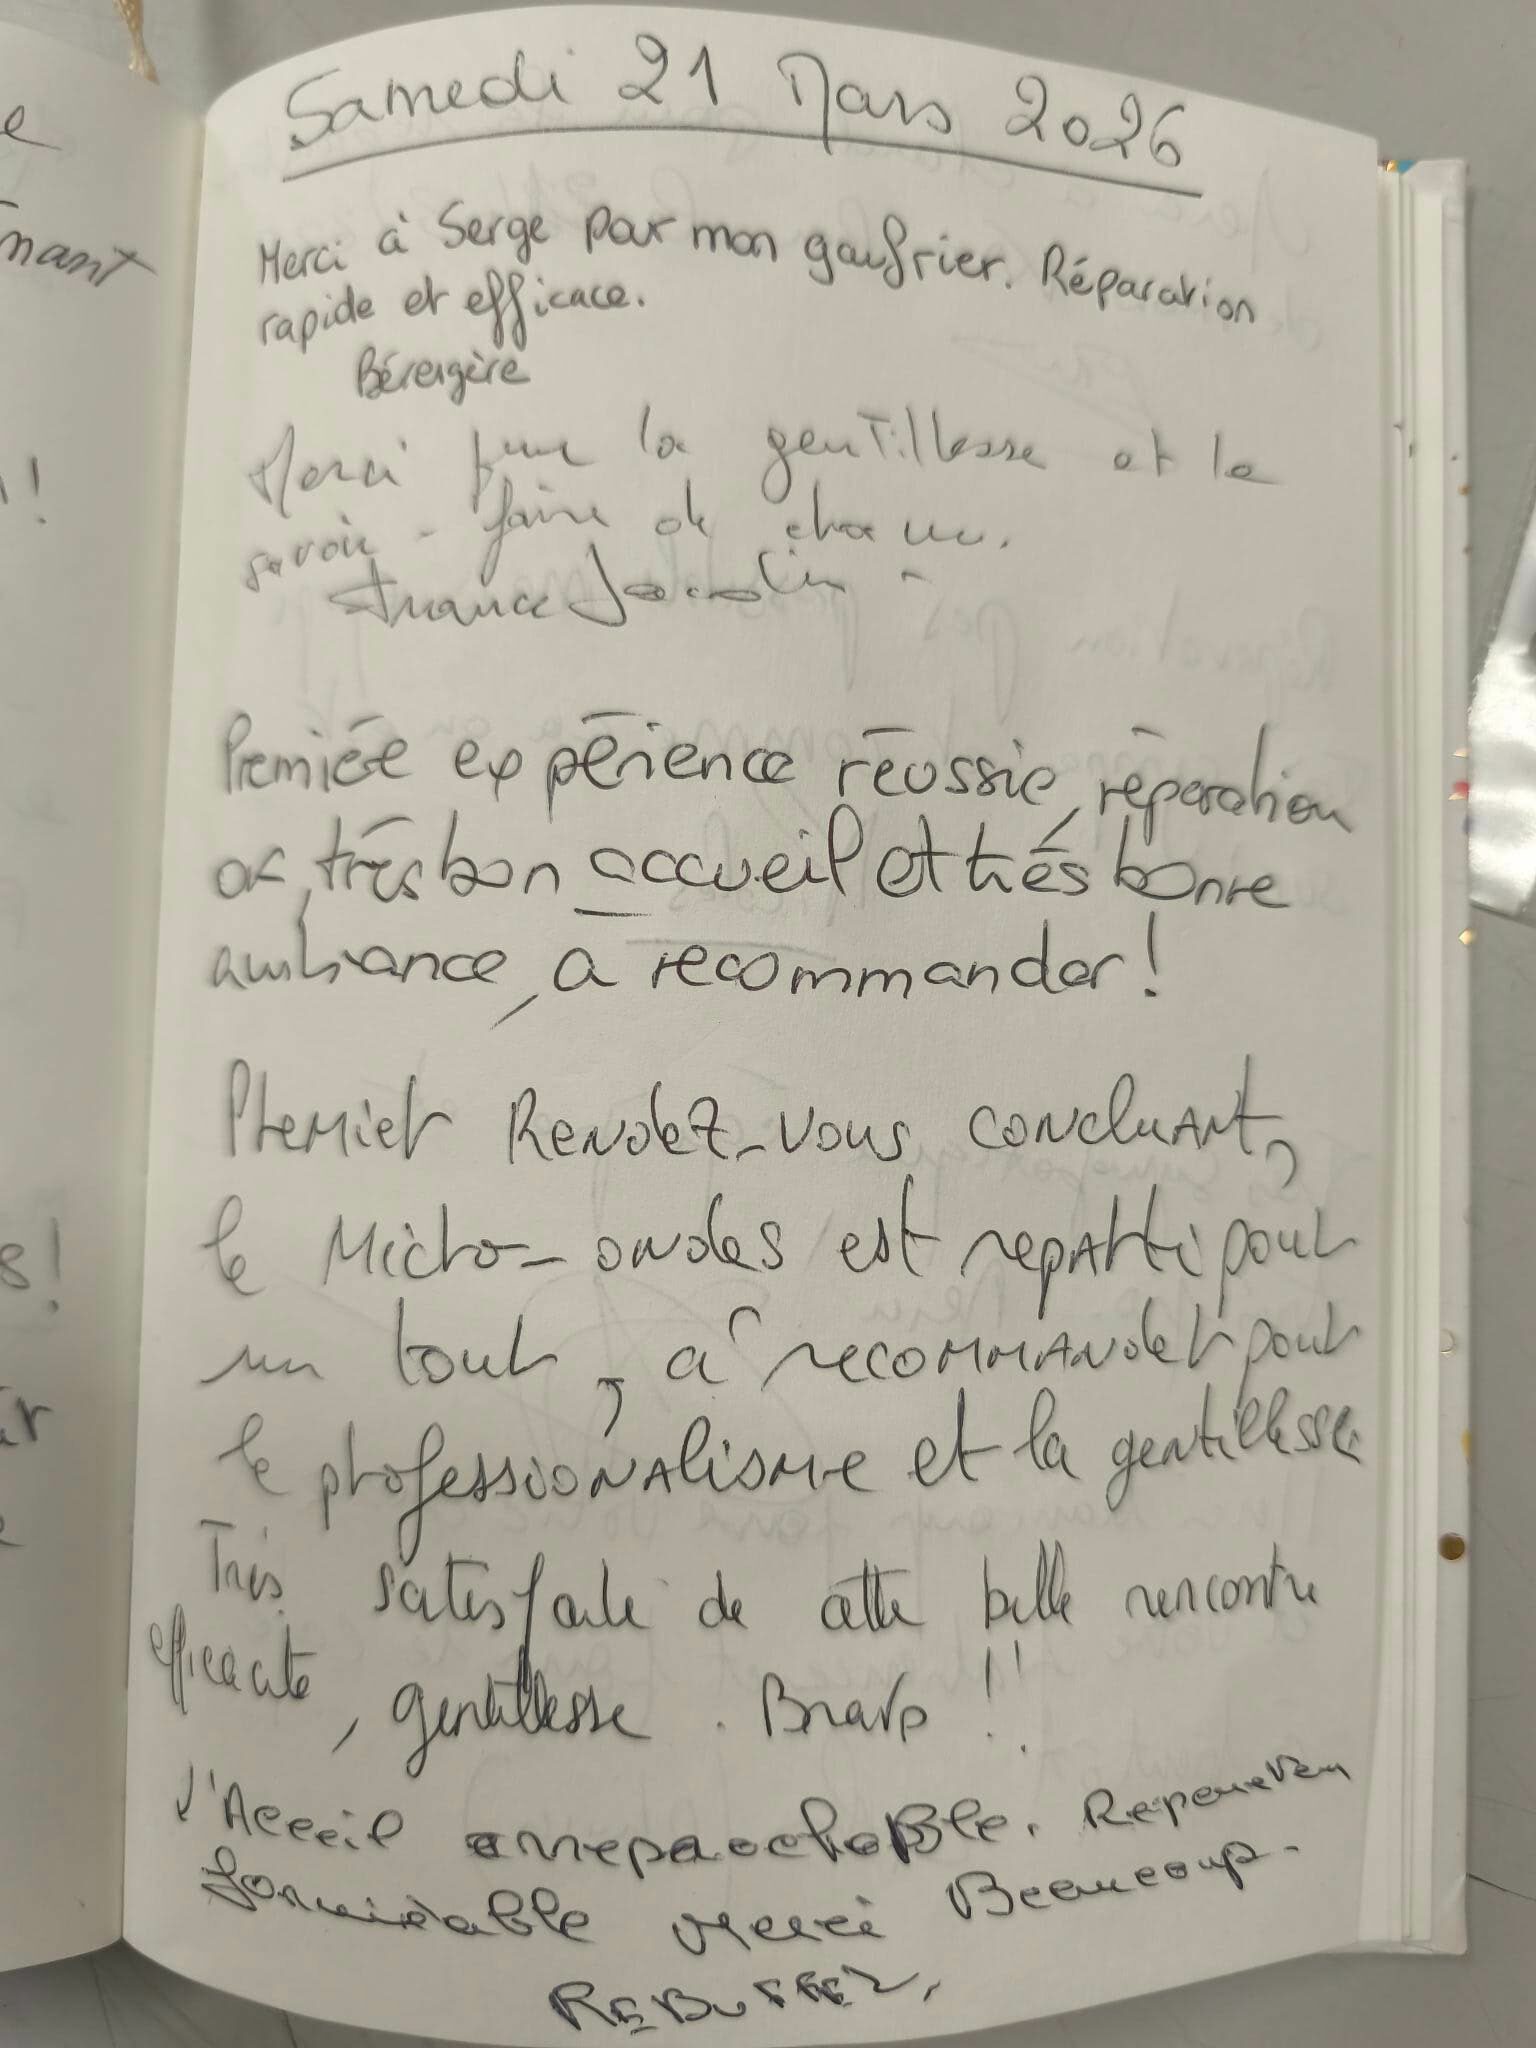 Samedi 21 Mars 2026
Merci à Serge pour mon gaufrier. Réparation
rapide et efficace.
Bérengère
Merci pour la gentillesse et le
savoir-faire de chacun.
France
Première expérience réussie, réparation
ok, très bon accueil et très bonne
ambiance, a recommander!
Premier Rendez-vous concluant,
le Micro-ondes est reparti pour
un tour, à recommander pour
le professionalisme et la gentillesse
Très satisfaite de cette belle rencontre
efficacité, gentillesse. Bravo !!
l'Acceil Reparation
formidable merci Beaucoup.
nant
!
s!